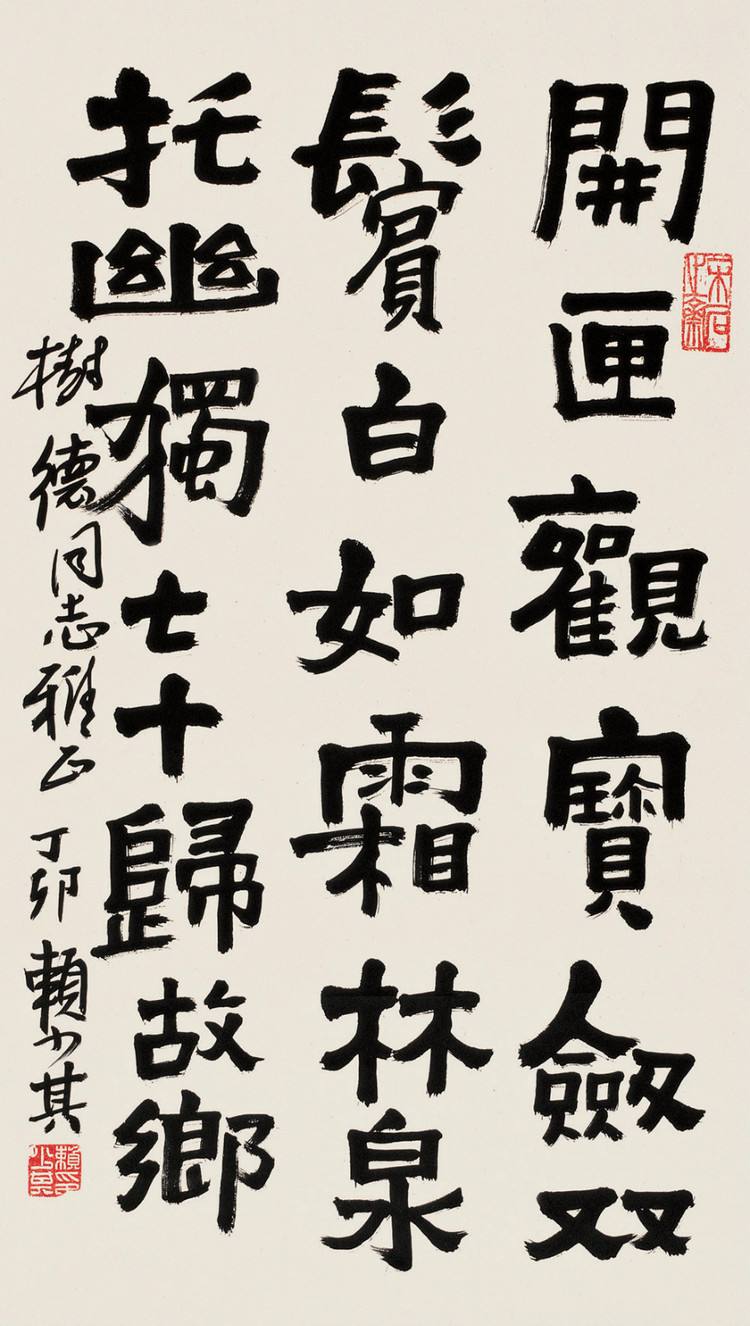 開匣觀寶劒双
鬢白如霜林泉
托幽獨七十歸故鄉
樹德同志雅正 丁卯 賴少其
賴少其印